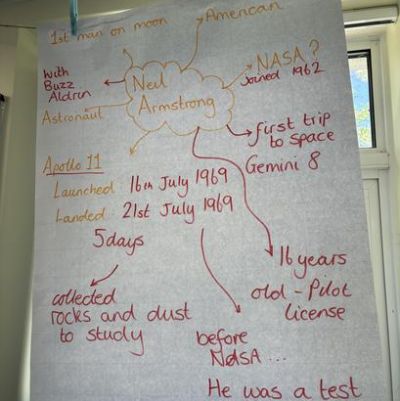 1st man on moon
American
With
Buzz
Aldrin
Neil
Armstrong
NASA?
Joined 1962
Astronaut
first trip
to space
Gemini 8
Apollo 11
Launched 16th July 1969
Landed 21st July 1969
5days
16 years
old - Pilot
license
collected
rocks and dust
to study
before
NASA ...
He was a test